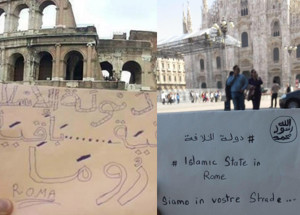 دولة الاسلا
باقية
روما
ROMA
# دولة الخلافة
# Islamic State in
Rome
Siamo in vostre Strade ...